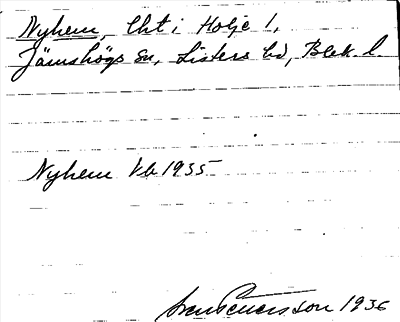 Nyhem, lht i Holje 1,
Jämshögs sn, Listers hd, Blek. l.
Nyhem Vb 1935
Sven Petersson 1936